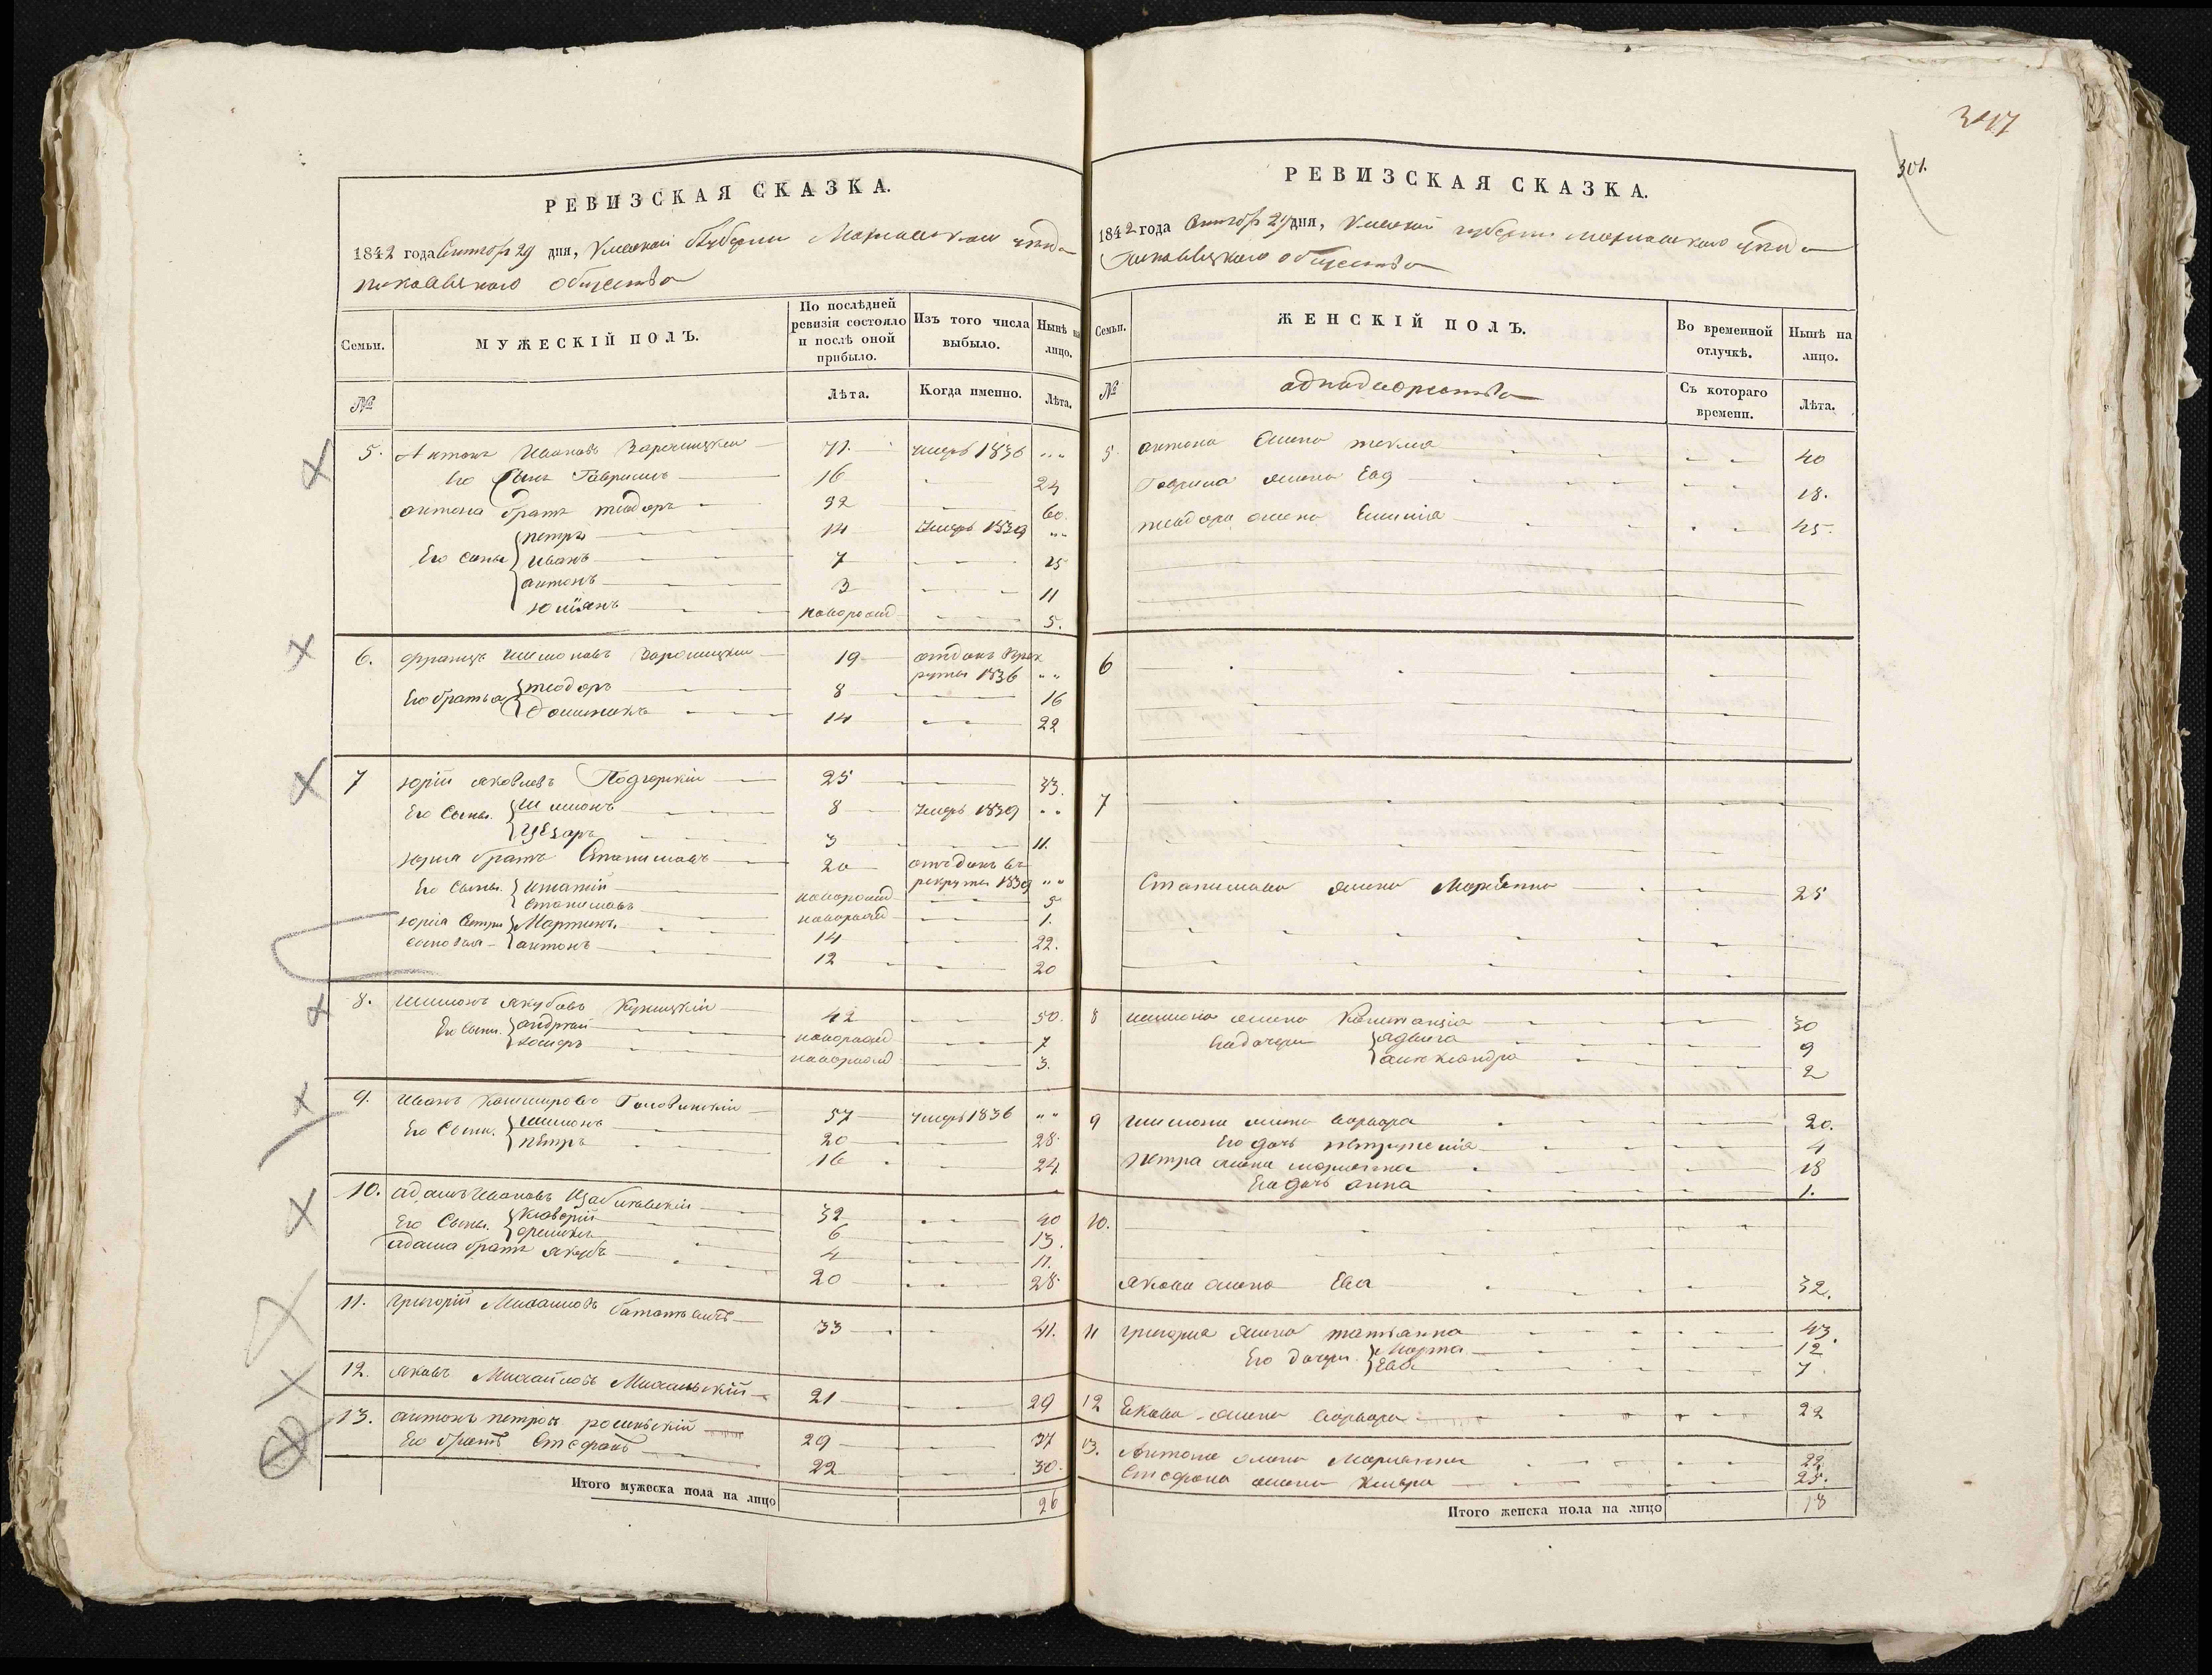 3017
301.
РЕВИЗСКАЯ СКАЗКА.
1842 года Сентяб 29 дня, Кіевской Губерніи уезда
общества
Семьи.
МУЖЕСКІЙ ПОЛЪ.
По послѣдней ревизіи состояло и послѣ оной прибыло.
Изъ того числа выбыло.
Нынѣ на лицо.
№
Лѣта.
Когда именно.
Лѣта.
5. Антонъ Ивановъ 71. умеръ 1836 „„
Его Сынъ Гаврило 16 24
антона братъ теодоръ 60.
Его Сыны петръ 14 Умеръ 1839 „„
иванъ 7 15
антонъ 3 11
Юліянъ новорожд 5.
6. францъ Шимоновъ 19 отданъ в рекруты 1836 „„
Его братья теодоръ 8 16
Доминикъ 14 22
7 юрій яковлевъ Подгорскій 25 33.
Его Сыны. Шимонъ 8 Умеръ 1839 „„
Цезаръ 3 11.
юрія братъ Станиславъ 20 отъданъ въ рекруты 1839 „„
Его Сыны. Игнатій новорожд 5
Станиславъ новорожд 1.
юрія Сестры Мартинъ 14 22.
сыновья антонъ 12 20
8. Шимонъ Якубовъ 42 50.
Его Сыны. андрей новорожд 7
іосифъ новорожд 3.
9. Иванъ Казимировъ Головинскій 57 умеръ 1836 „„
Его Сыны. Шимонъ 20 28.
петръ 16 24
10. адамъ Ивановъ 32 40
Его Сыны. Ксаверій 6 13.
4 11.
адама братъ якубъ 20 28.
11. григорій Михаиловъ 33 41.
12. яковъ Михайловъ Михальскій 21 29
13. антонъ петровъ 29 37
Его братъ Стефанъ 22 30.
Итого мужеска пола на лицо 26
РЕВИЗСКАЯ СКАЗКА.
1842 года Сентяб 29 дня, Кіевской губерніи уезда
общества
Семьи.
ЖЕНСКІЙ ПОЛЪ.
Во временной отлучкѣ.
Нынѣ на лицо.
№
Съ котораго времени.
Лѣта.
5 антона жена текля 40
Гаврила жена Ева 18.
теодора жена 45.
6
7
Станислава жена Маріанна 25
8 шимона жена Констанція 30
Его дочери Ядвига 9
александра 2
9 Шимона жена варвара 20.
Его дочь 4
Петра жена маріанна 18
Его дочь анна 1.
10.
якова жена Ева 32.
11 григорія жена татьянна 43.
Его дочери Марта 12
Ева 7.
12 Якова жена варвара 22
13. Антона жена Маріанна 22
Стефана жена 25.
Итого женска пола на лицо 18